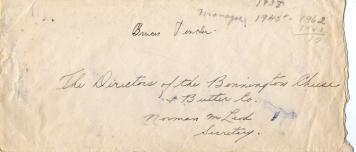 1938
Manager 1945 - 1962
1945
17
Bruce Vender.
The Directors of the Bonnington Cheese
& Butter Co.
Norman McLeod
Secretary.